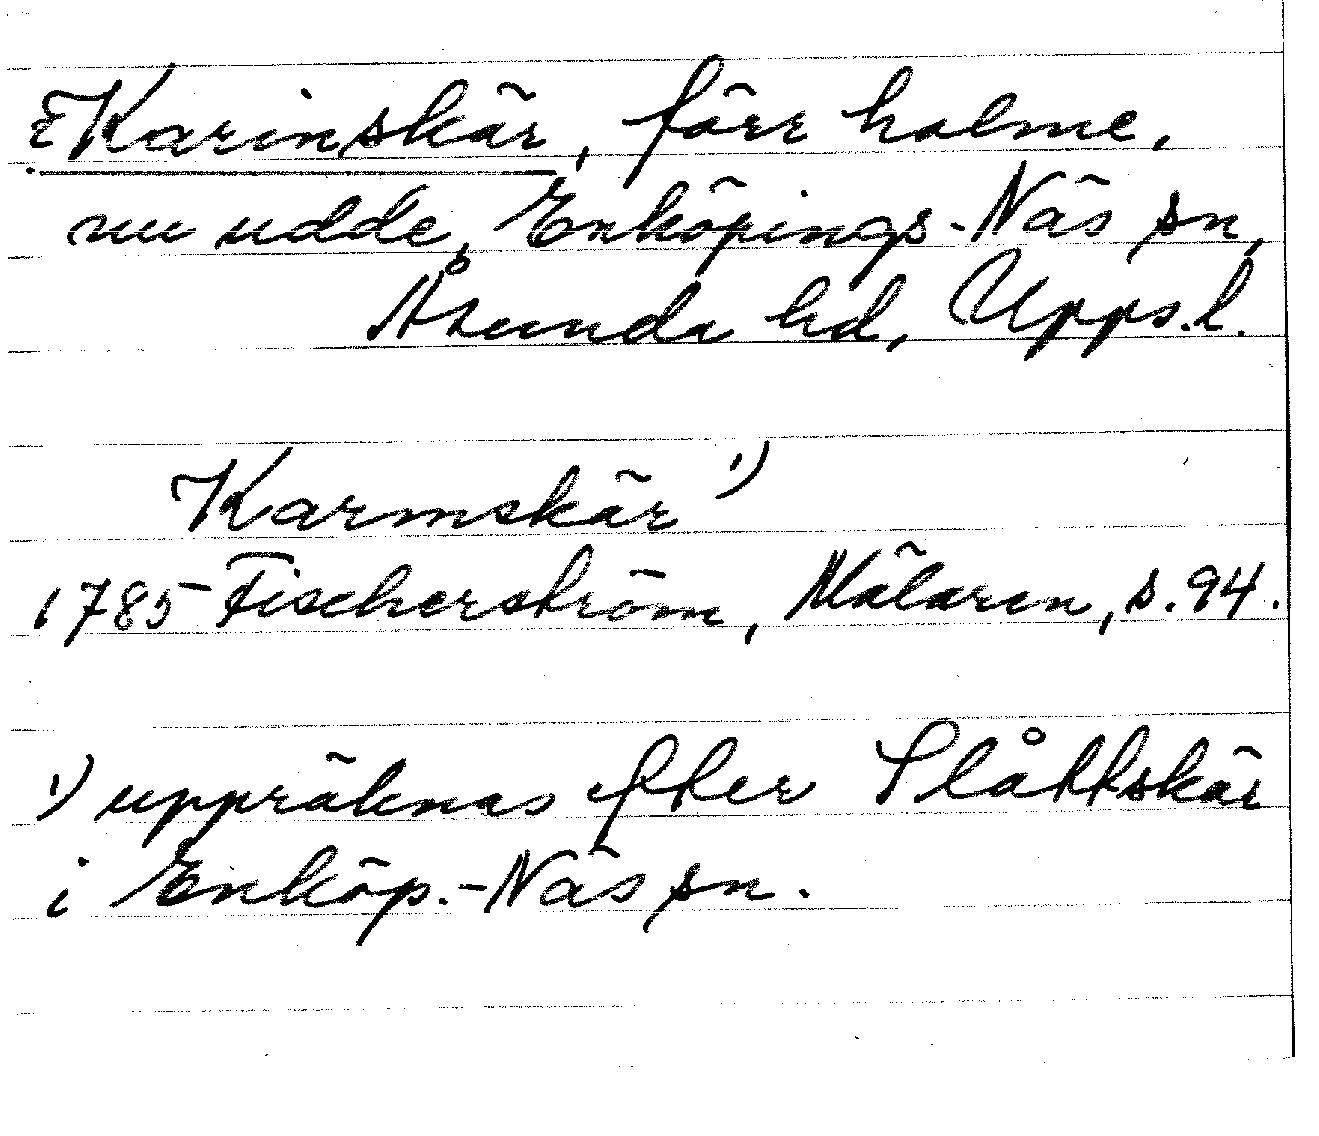 Karinskär, förr holme,
nu udde, Enköpings-Näs sn,
Åsunda hd, Upps.l.
Karmskär 1)
1785 Fischerström, Mälaren, s. 94.
1) uppräknas efter Slåttskär
i Enköp.-Näs sn.